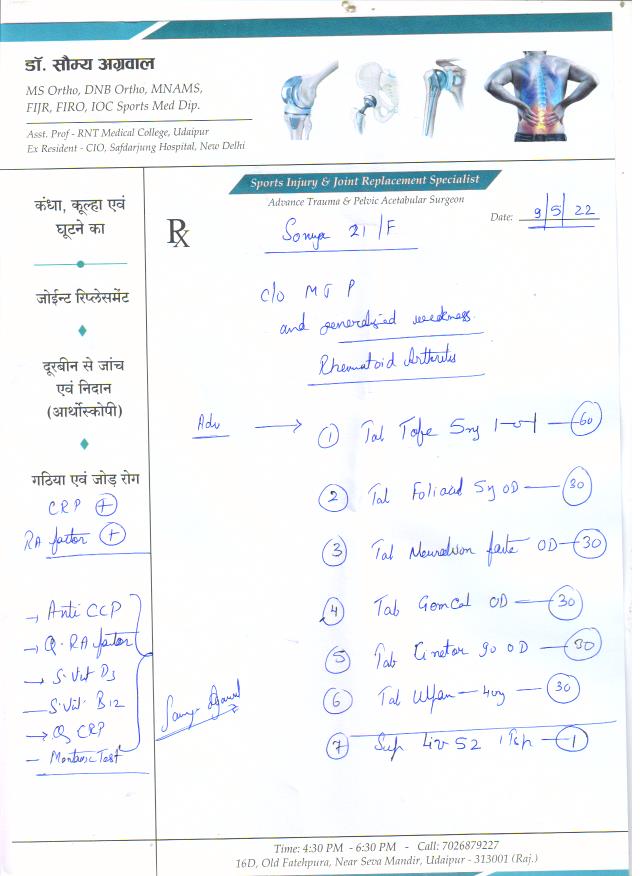 डॉ. सौम्य अग्रवाल
MS Ortho, DNB Ortho, MNAMS,
FIJR, FIRO, IOC Sports Med Dip.
Asst. Prof - RNT Medical College, Udaipur
Ex Resident - CIO, Safdarjung Hospital, New Delhi
Sports Injury & Joint Replacement Specialist
Advance Trauma & Pelvic Acetabular Surgeon
Date: 9/5/22
कंधा, कूल्हा एवं
घूटने का
जोईन्ट रिप्लेसमेंट
दूरबीन से जांच
एवं निदान
(आर्थोस्कोपी)
गठिया एवं जोड़ रोग
CRP +
RA factor +
→ Anti CCP
→ Q. RA factor
→ S. Vit D3
— S. Vit. B12
→ Q CRP
— Test
Rx
21/F
c/o M J P
and generalised weakness.
Rheumatoid Arthritis
Adv →
1 Tab 5mg 60
2 Tab 5mg OD — 30
3 Tab forte OD — 30
4 Tab OD — 30
5 Tab 90 OD — 30
6 Tab — 40mg — 30
7 Syp Liv 52 1 tsp — 1
Time: 4:30 PM - 6:30 PM - Call: 7026879227
16D, Old Fatehpura, Near Seva Mandir, Udaipur - 313001 (Raj.)